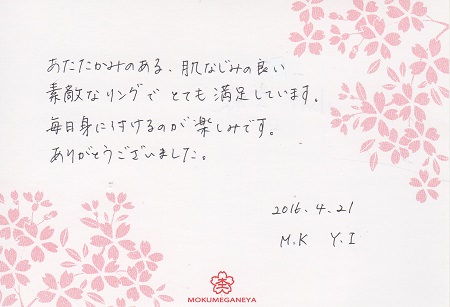 あたたかみのある、肌なじみの良い
素敵なリングで とても満足しています。
毎日身に付けるのが楽しみです。
ありがとうございました。
2016.4.21
M.K Y.I
MOKUMEGANEYA